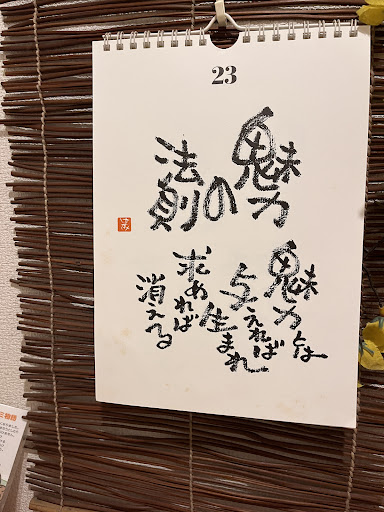 23
魅力の
法則
魅力とは
与えれば
生まれ
求めれば
消える